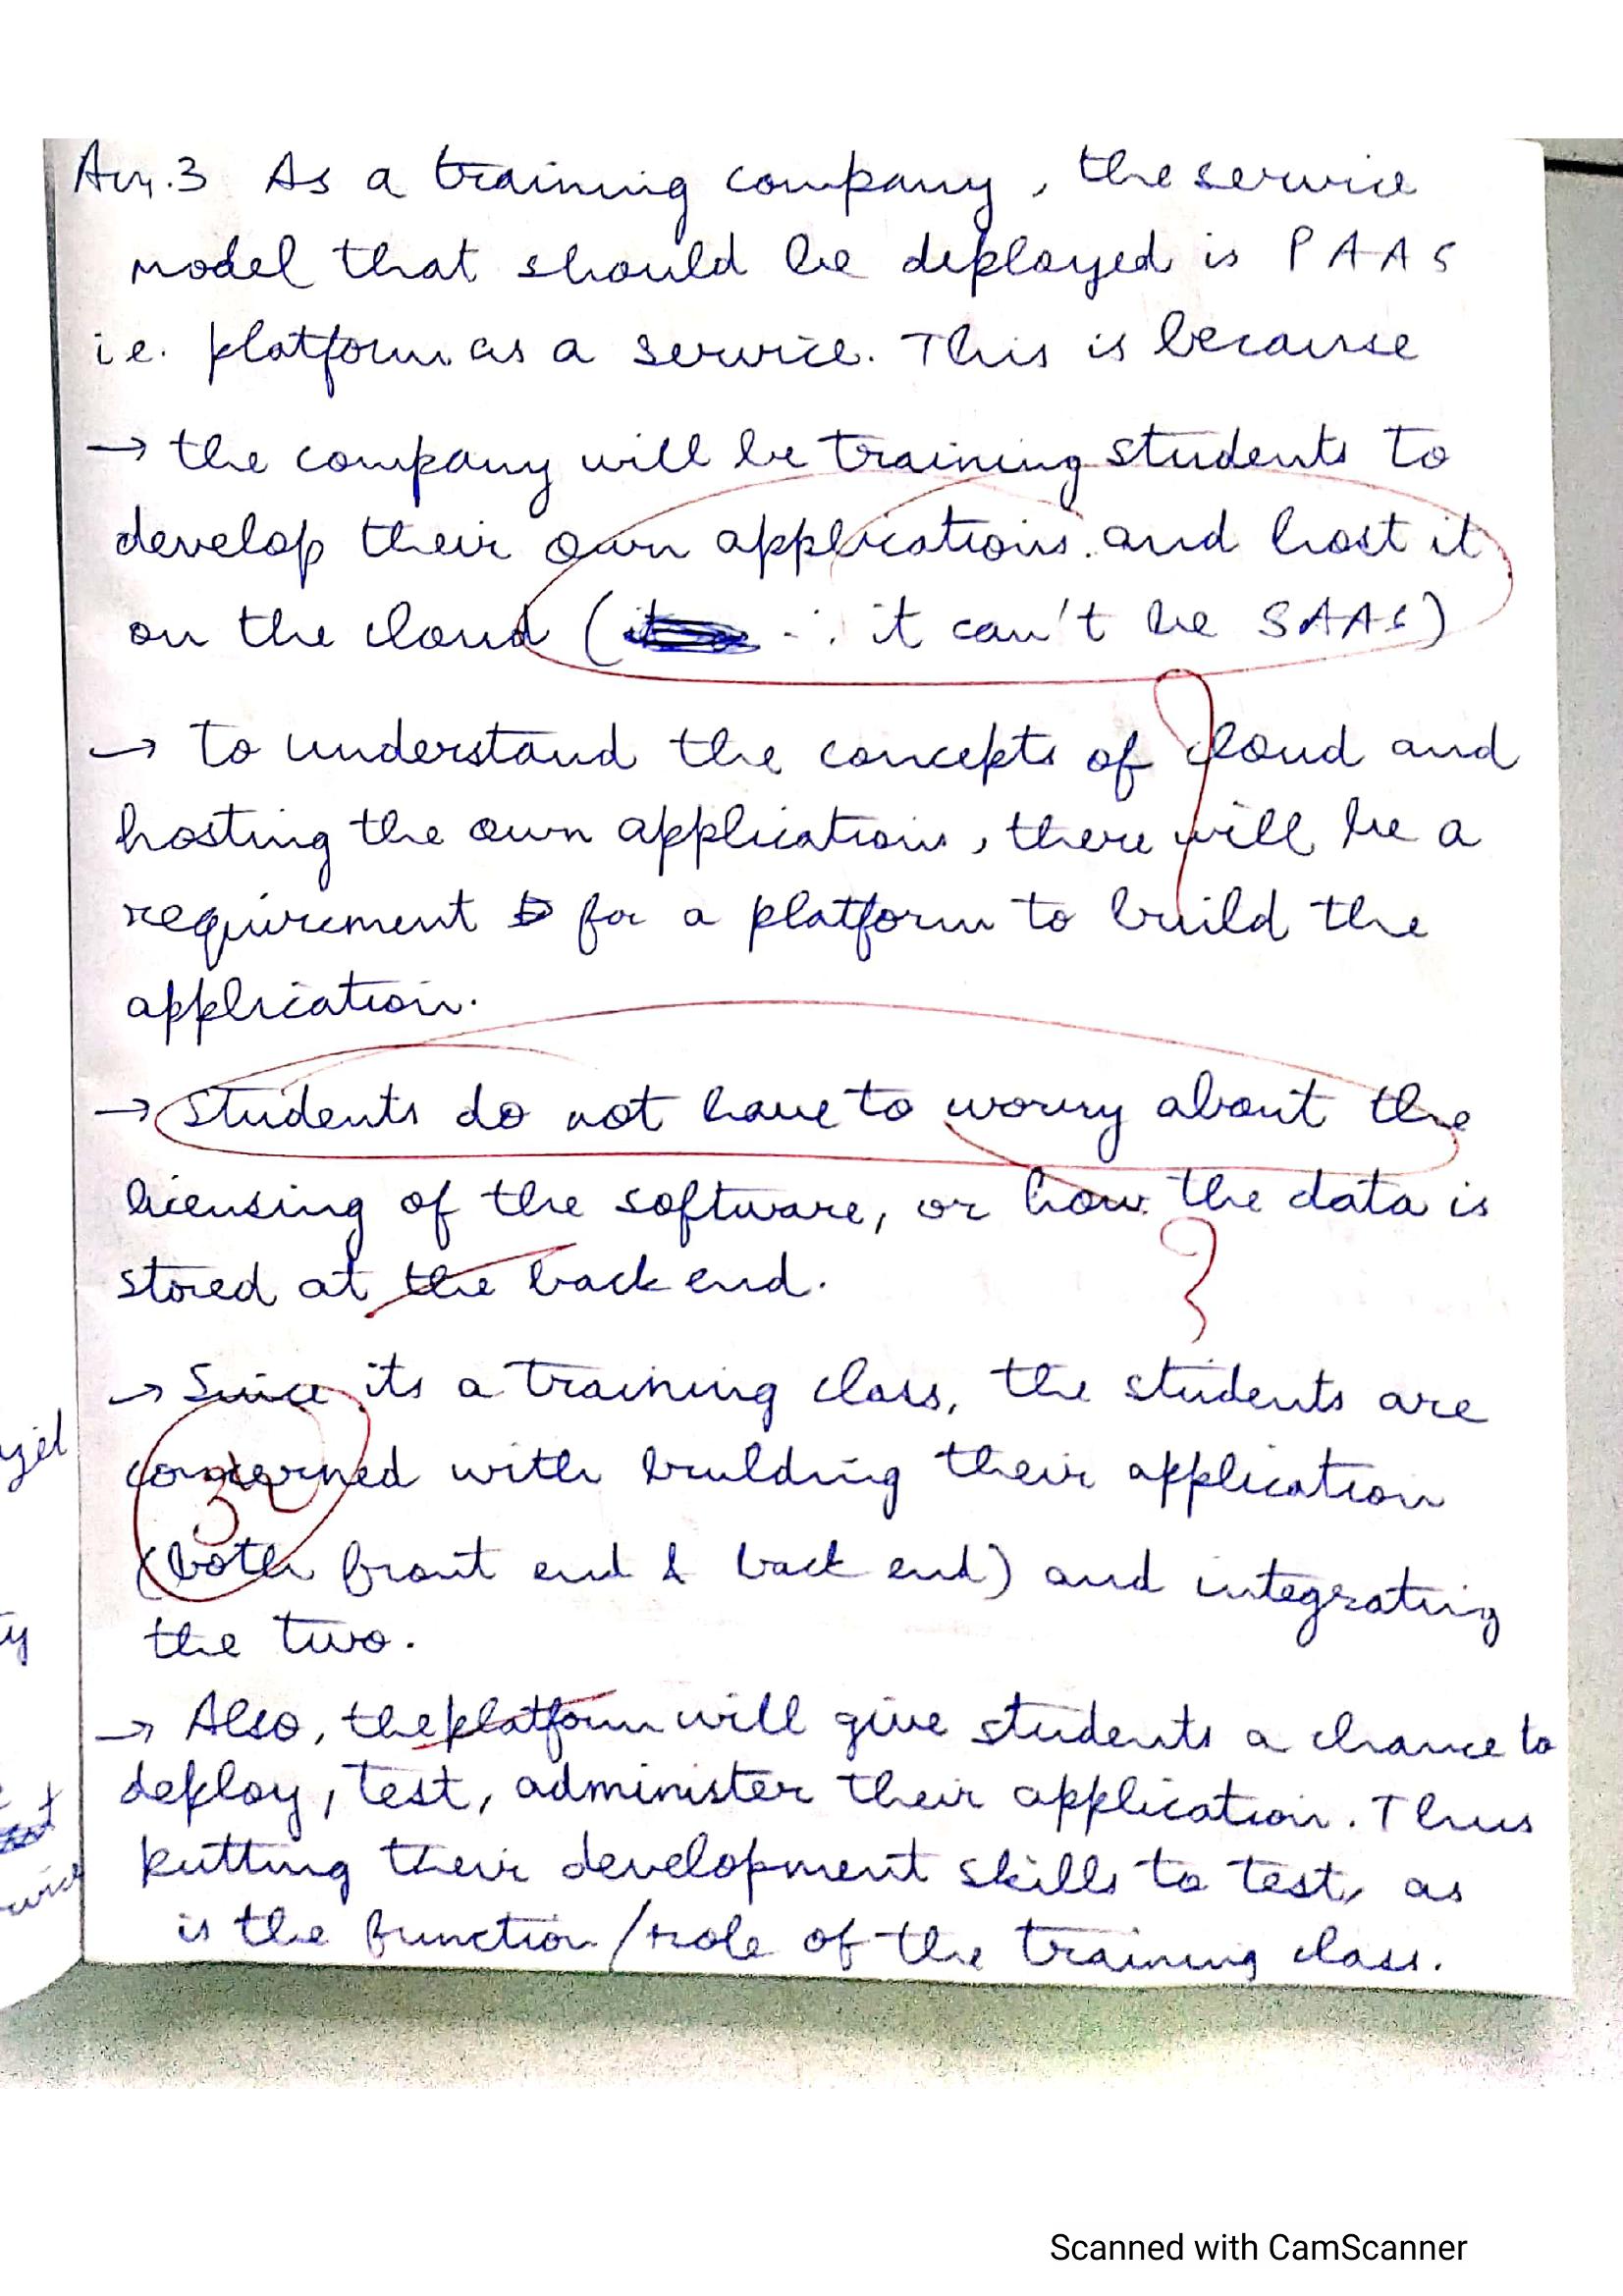 Ans.3 As a training company, the service
model that should be deployed is PAAS
i.e. platform as a service. This is because
→ the company will be training students to
develop their own applications. and host it
on the cloud (∴ it can't be SAAS)
→ to understand the concepts of cloud and
hosting the own application, there will be a
requirement for a platform to build the
application.
→ students do not have to worry about the
licensing of the software, or how the data is
stored at the back end.
→ Since its a training class, the students are
concerned with building their application
(both front end & back end) and integrating
the two.
→ Also, the platform will give students a chance to
deploy, test, administer their application. Thus
putting their development skills to test, as
is the function/role of the training class.
Scanned with CamScanner